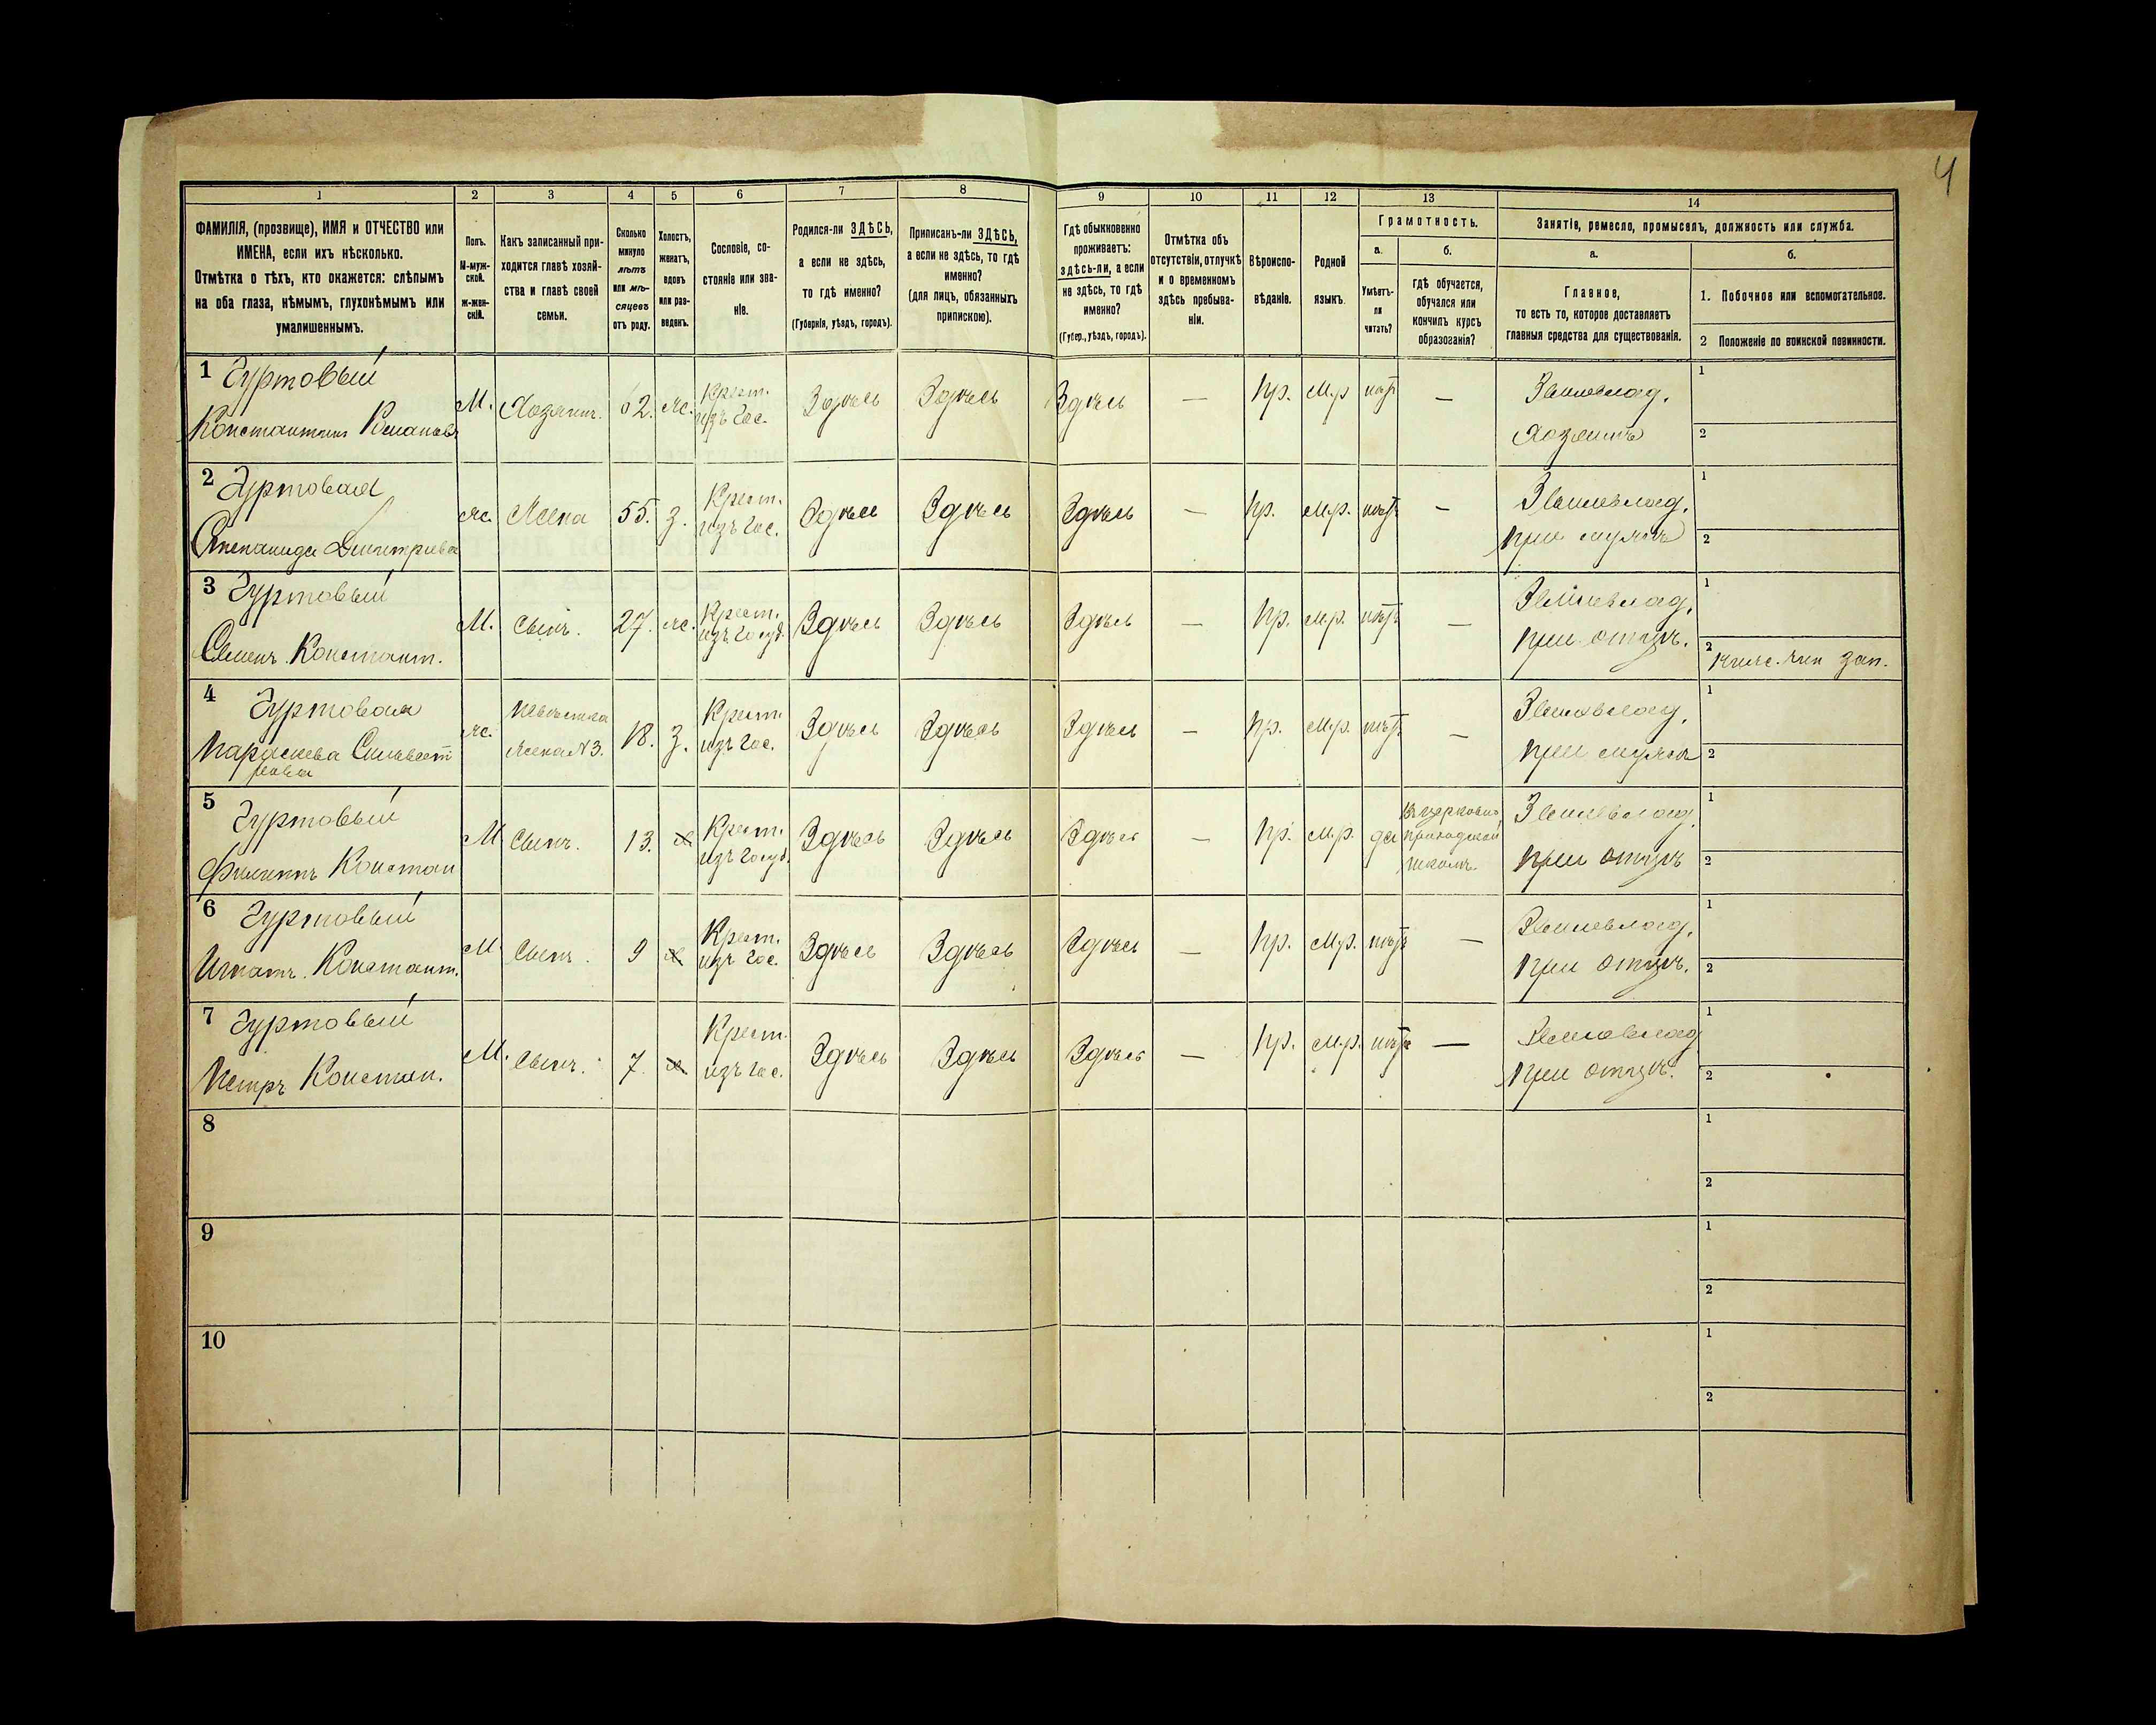 4
1 2 3 4 5 6 7 8 9 10 11 12 13 14
ФАМИЛІЯ, (прозвище), ИМЯ и ОТЧЕСТВО или
ИМЕНА, если ихъ нѣсколько.
Отмѣтка о тѣхъ, кто окажется: слѣпымъ
на оба глаза, нѣмымъ, глухонѣмымъ или
умалишеннымъ.
Полъ.
М-муж-
ской.
ж-жен-
скій.
Какъ записанный при-
ходится главѣ хозяй-
ства и главѣ своей
семьи.
Сколько
минуло
лѣтъ
или мѣ-
сяцевъ
отъ роду.
Холостъ,
женатъ,
вдовъ
или раз-
веденъ.
Сословіе, со-
стояніе или зва-
ніе.
Родился-ли ЗДѢСЬ,
а если не здѣсь,
то гдѣ именно?
(Губернія, уѣздъ, городъ).
Приписанъ-ли ЗДѢСЬ,
а если не здѣсь, то гдѣ
именно?
(для лицъ, обязанныхъ
припискою).
Гдѣ обыкновенно
проживаетъ:
здѣсь-ли, а если
не здѣсь, то гдѣ
именно?
(Губер., уѣздъ, городъ).
Отмѣтка объ
отсутствіи, отлучкѣ
и о временномъ
здѣсь пребыва-
ніи.
Вѣроиспо-
вѣданіе.
Родной
языкъ.
Грамотность.
а.
Умѣетъ-
ли
читать?
б.
гдѣ обучается,
обучался или
кончилъ курсъ
образованія?
Занятіе, ремесло, промыселъ, должность или служба.
а.
Главное,
то есть то, которое доставляетъ
главныя средства для существованія.
б.
1. Побочное или вспомогательное.
2 Положеніе по воинской повинности.
1 Гуртовый
Константинъ Романовъ
М. Хозяинъ. 62. ж. Крест.
изъ гос.
Здѣсь Здѣсь Здѣсь — пр. м.р нѣтъ — Землевлад.
хозяинъ
1
2
2 Гуртовая
Степанида Димитріева
ж. Жена 55. з. Крест.
изъ гос.
Здѣсь Здѣсь Здѣсь — пр. м.р. нѣтъ — Землевлад.
при мужѣ
1
2
3 Гуртовый
Семенъ Констант.
М. Сынъ. 27. ж. Крест.
изъ госуд.
Здѣсь Здѣсь Здѣсь — пр. м.р. нѣтъ — Землевлад.
при отцѣ.
1
2 зап.
4 Гуртовая
Параскева Сильвест
ровна
ж. Невѣстка
жена №3.
18. з. Крест.
изъ гос.
Здѣсь Здѣсь Здѣсь — пр. м.р. нѣтъ — Землевлад.
при мужѣ
1
2
5 Гуртовый
Филиппъ Констан
М Сынъ. 13. х Крест.
изъ госуд.
Здѣсь Здѣсь Здѣсь — пр. м.р. да въ церковно
приходской
школѣ.
Землевлад.
при отцѣ
1
2
6 Гуртовый
Игнатъ Констант.
М Сынъ. 9 х. Крест.
изъ гос.
Здѣсь Здѣсь Здѣсь — пр. м.р. нѣтъ — Землевлад.
при отцѣ.
1
2
7 Гуртовый
Петръ Констан.
М. Сынъ. 7. х. Крест.
изъ гос.
Здѣсь Здѣсь Здѣсь — пр. м.р. нѣтъ — Землевлад
при отцѣ.
1
2
8
1
2
9
1
2
10
1
2